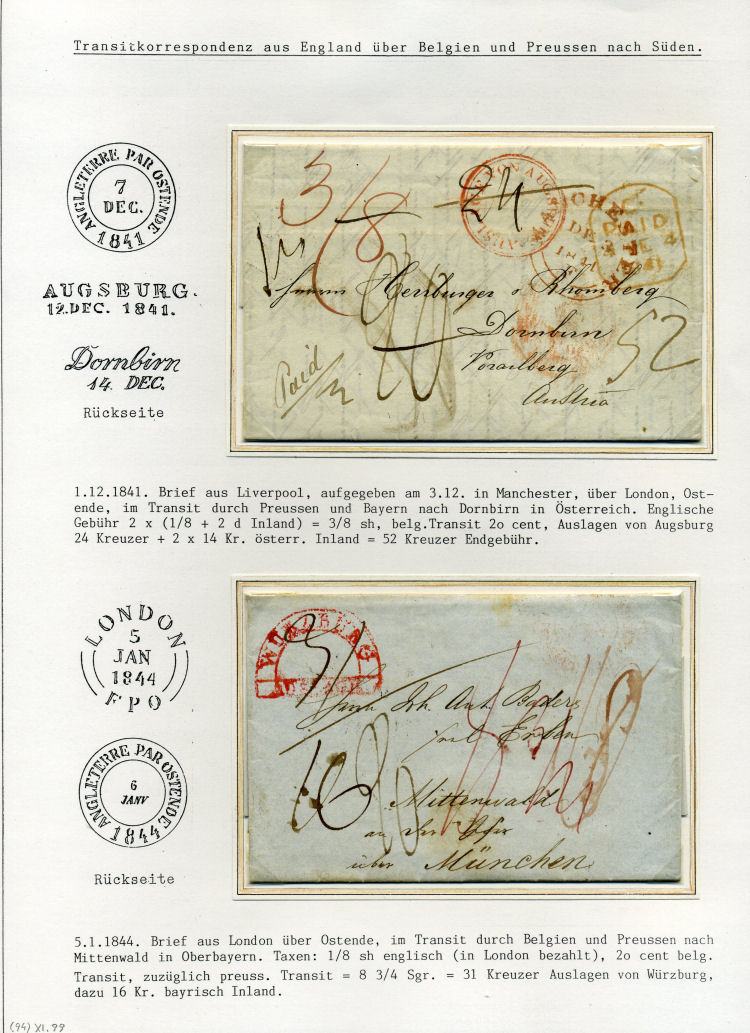 Transitkorrespondenz aus England über Belgien und Preussen nach Süden.
ANGLETERRE PAR OSTENDE
7
DEC.
1841
AUGSBURG.
12.DEC. 1841.
Dornbirn
14. DEC.
Rückseite
3/8
24
PAID
Herrburger & Rhomberg
Dornbirn
Vorarlberg
Austria
Paid
52
1.12.1841. Brief aus Liverpool, aufgegeben am 3.12. in Manchester, über London, Ost-
ende, im Transit durch Preussen und Bayern nach Dornbirn in Österreich. Englische
Gebühr 2 x (1/8 + 2 d Inland) = 3/8 sh, belg.Transit 2o cent, Auslagen von Augsburg
24 Kreuzer + 2 x 14 Kr. österr. Inland = 52 Kreuzer Endgebühr.
LONDON
5
JAN
1844
F P O
ANGLETERRE PAR OSTENDE
6
JANV
1844
Rückseite
WÜRZBURG
Joh. Ant. Baders
Erben
Mittenwald
an der Isar
über München
5.1.1844. Brief aus London über Ostende, im Transit durch Belgien und Preussen nach
Mittenwald in Oberbayern. Taxen: 1/8 sh englisch (in London bezahlt), 2o cent belg.
Transit, zuzüglich preuss. Transit = 8 3/4 Sgr. = 31 Kreuzer Auslagen von Würzburg,
dazu 16 Kr. bayrisch Inland.
(94) XI.99